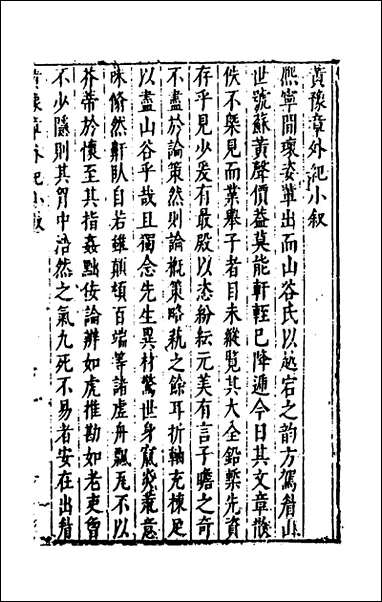 黃豫章外紀小叙
熙寧間瓌姿輩出而山谷氏以越宕之韵方駕眉山
世號蘇黃聲價益莫能軒輊已降遞今日其文章散
佚不槩見而業舉子者目未縱覧其大全鉛槧先資
存乎見少爰有最殿以态紛紜元美有言子瞻之奇
不盡於論策然則論槪策略蓺之餘耳折軸充棟足
以盡山谷乎哉且獨念先生異材驚世身竄炎荒意
味翛然鼾臥自若雖顛頓百端等諸虚舟飄瓦不以
芥蒂於懷至其指姦黜佞論辨如虎推勘如老吏曾
不少隱則其胷中浩然之氣九死不易者安在出眉
黃豫章外紀小叙